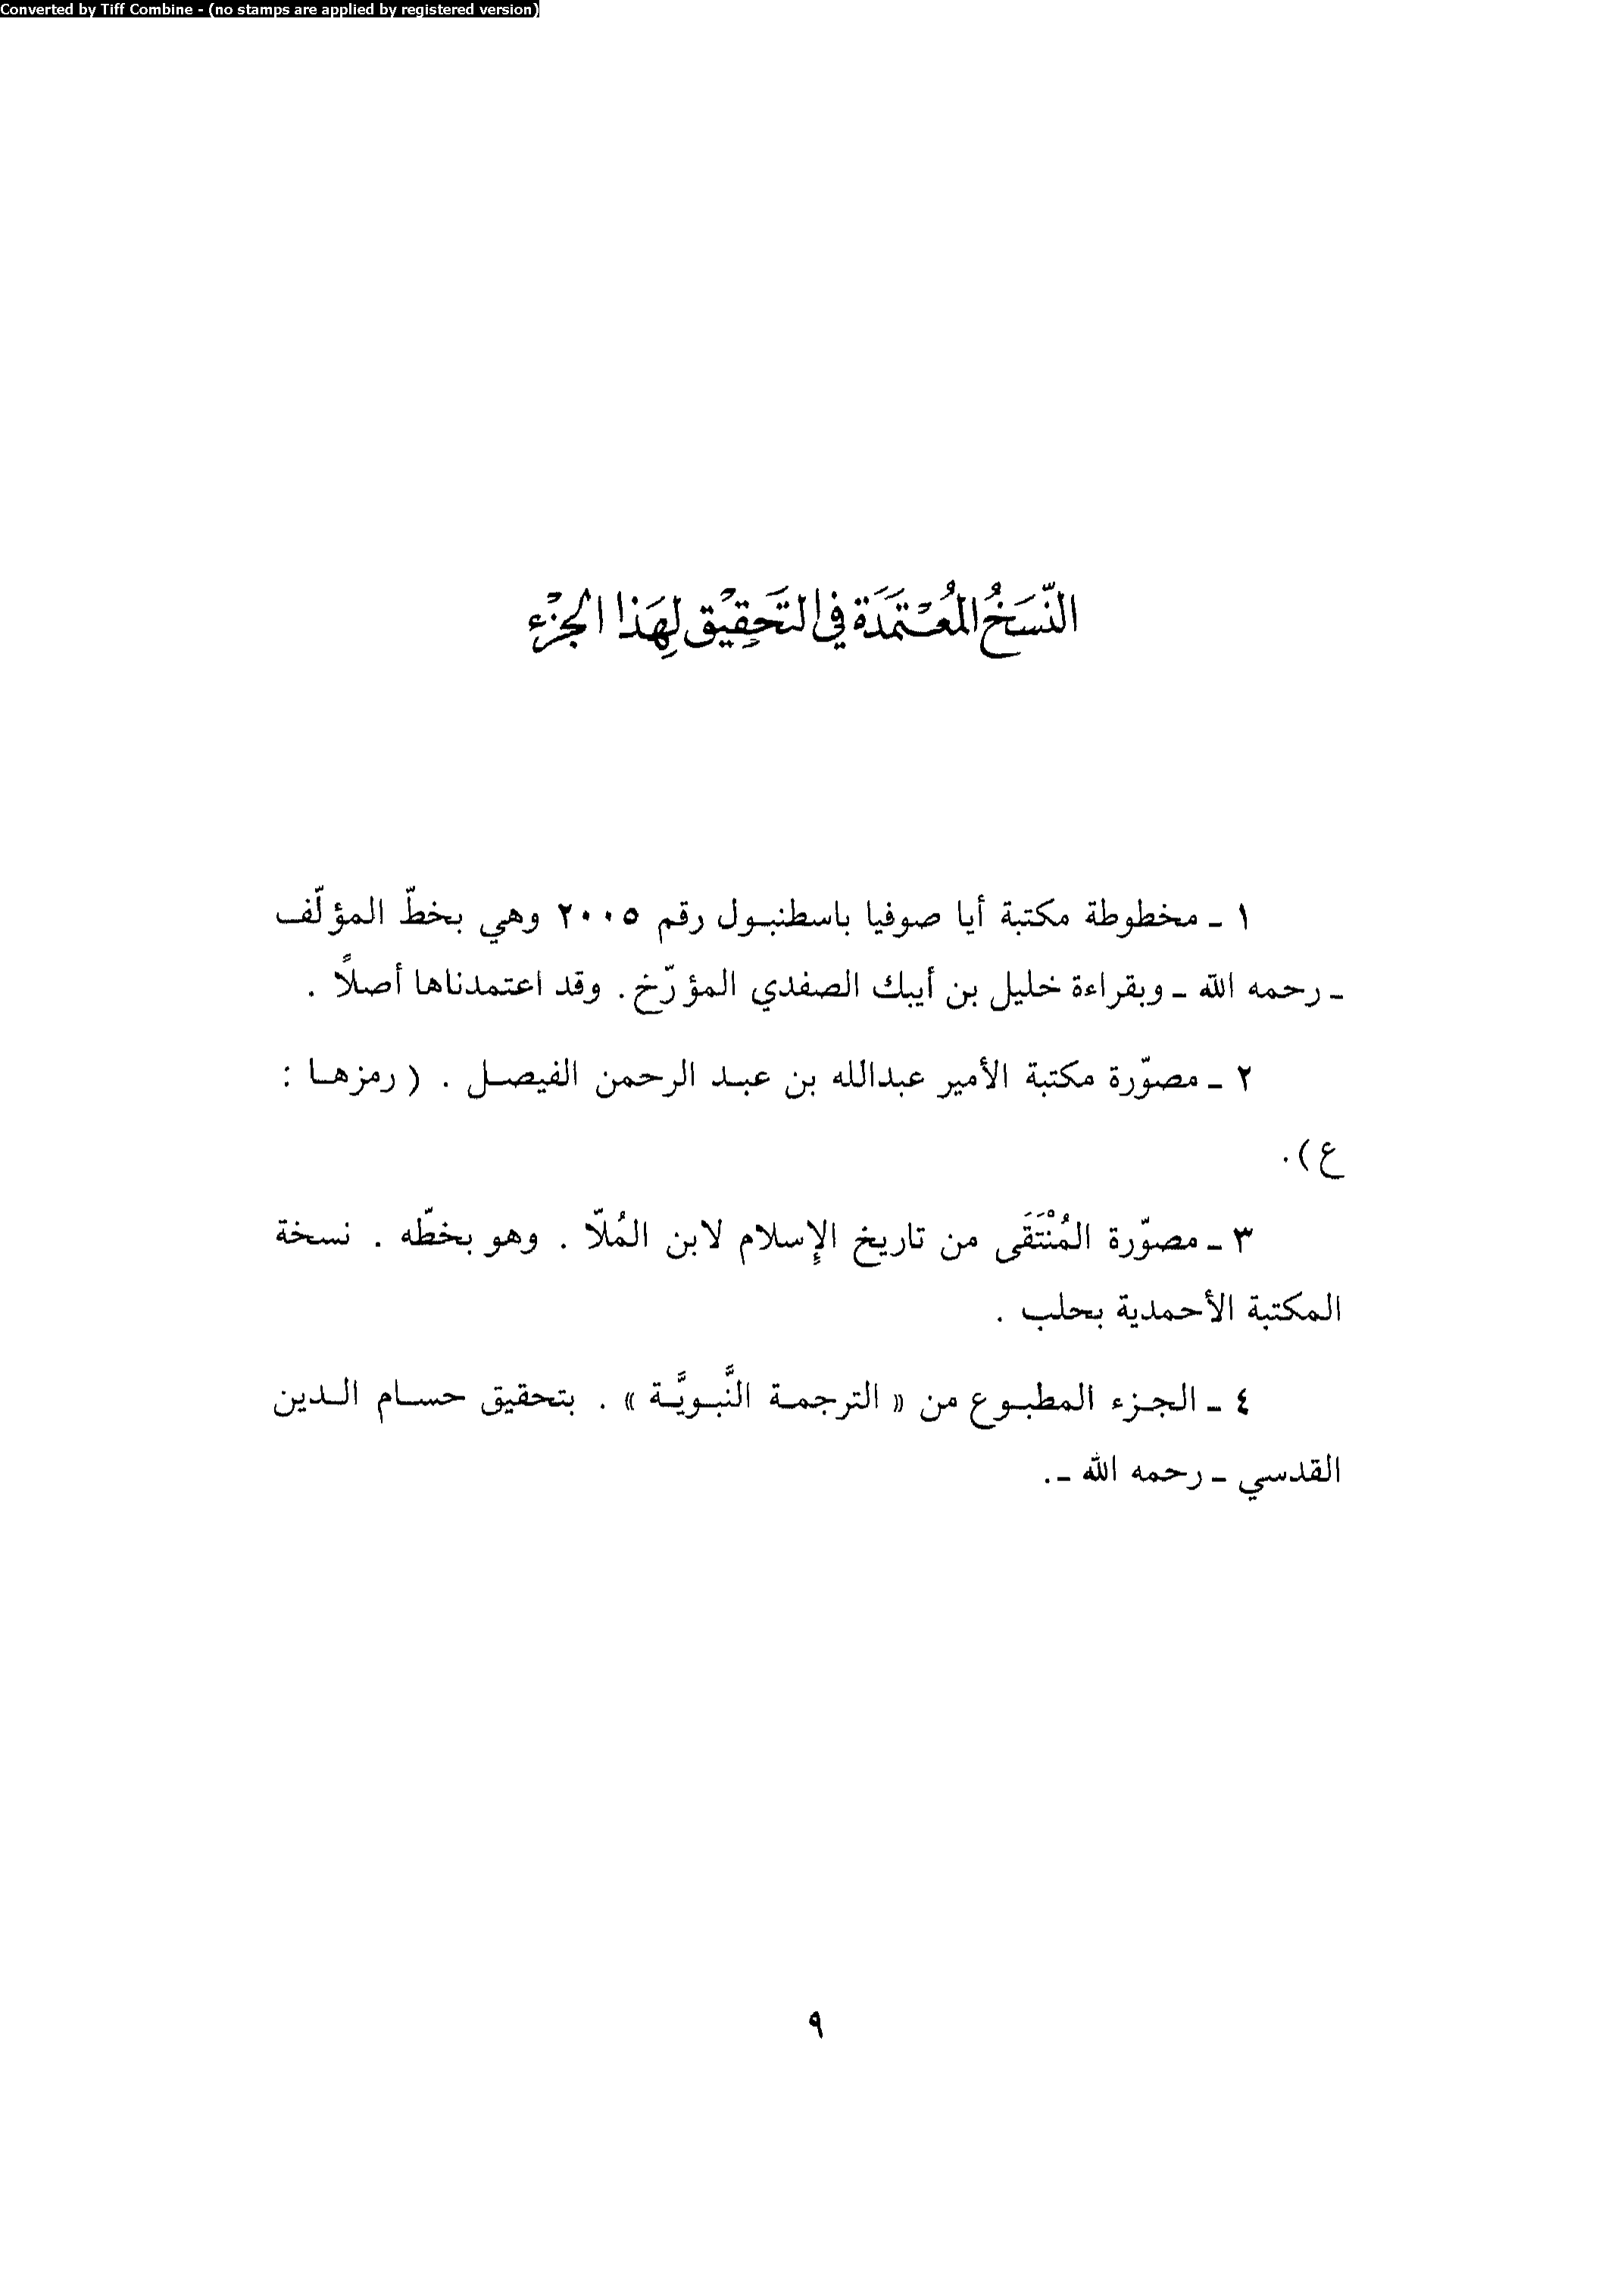 Converted by Tiff Combine - (no stamps are applied by registered version)
النّسَخُ المُعْتَمَدَة في التَحقِيْق لِهَذا الجزْء
١ ـ مخطوطة مكتبة أيا صوفيا باسطنبول رقم ٢٠٠٥ وهي بخطّ المؤلّف
ـ رحمه الله ـ وبقراءة خليل بن أيبك الصفدي المؤرّخ. وقد اعتمدناها أصلاً .
٢ ـ مصوّرة مكتبة الأمير عبدالله بن عبد الرحمن الفيصل . ( رمزها :
ع ) .
٣ ـ مصوّرة المُنْتَقَى من تاريخ الإسلام لابن المُلاّ . وهو بخطّه . نسخة
المكتبة الأحمدية بحلب .
٤ ـ الجزء المطبوع من « الترجمة النَّبويَّة » . بتحقيق حسام الدين
القدسي ـ رحمه الله ـ .
٩